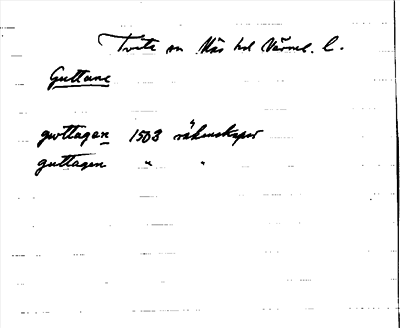 Tveta sn Näs hd Värml. l.
Guttane
guttagan 1503 räkenskaper
guttagen " "